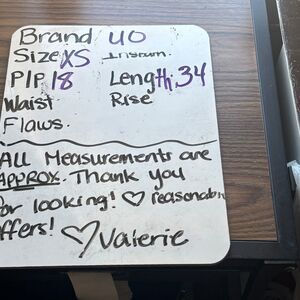 Brand UO
Size XS Inseam.
P/P 18 Length. 34
Waist Rise
Flaws.
ALL Measurements are
APPROX. Thank you
for looking! ♡ reasonabl
offers! ♡ Valerie